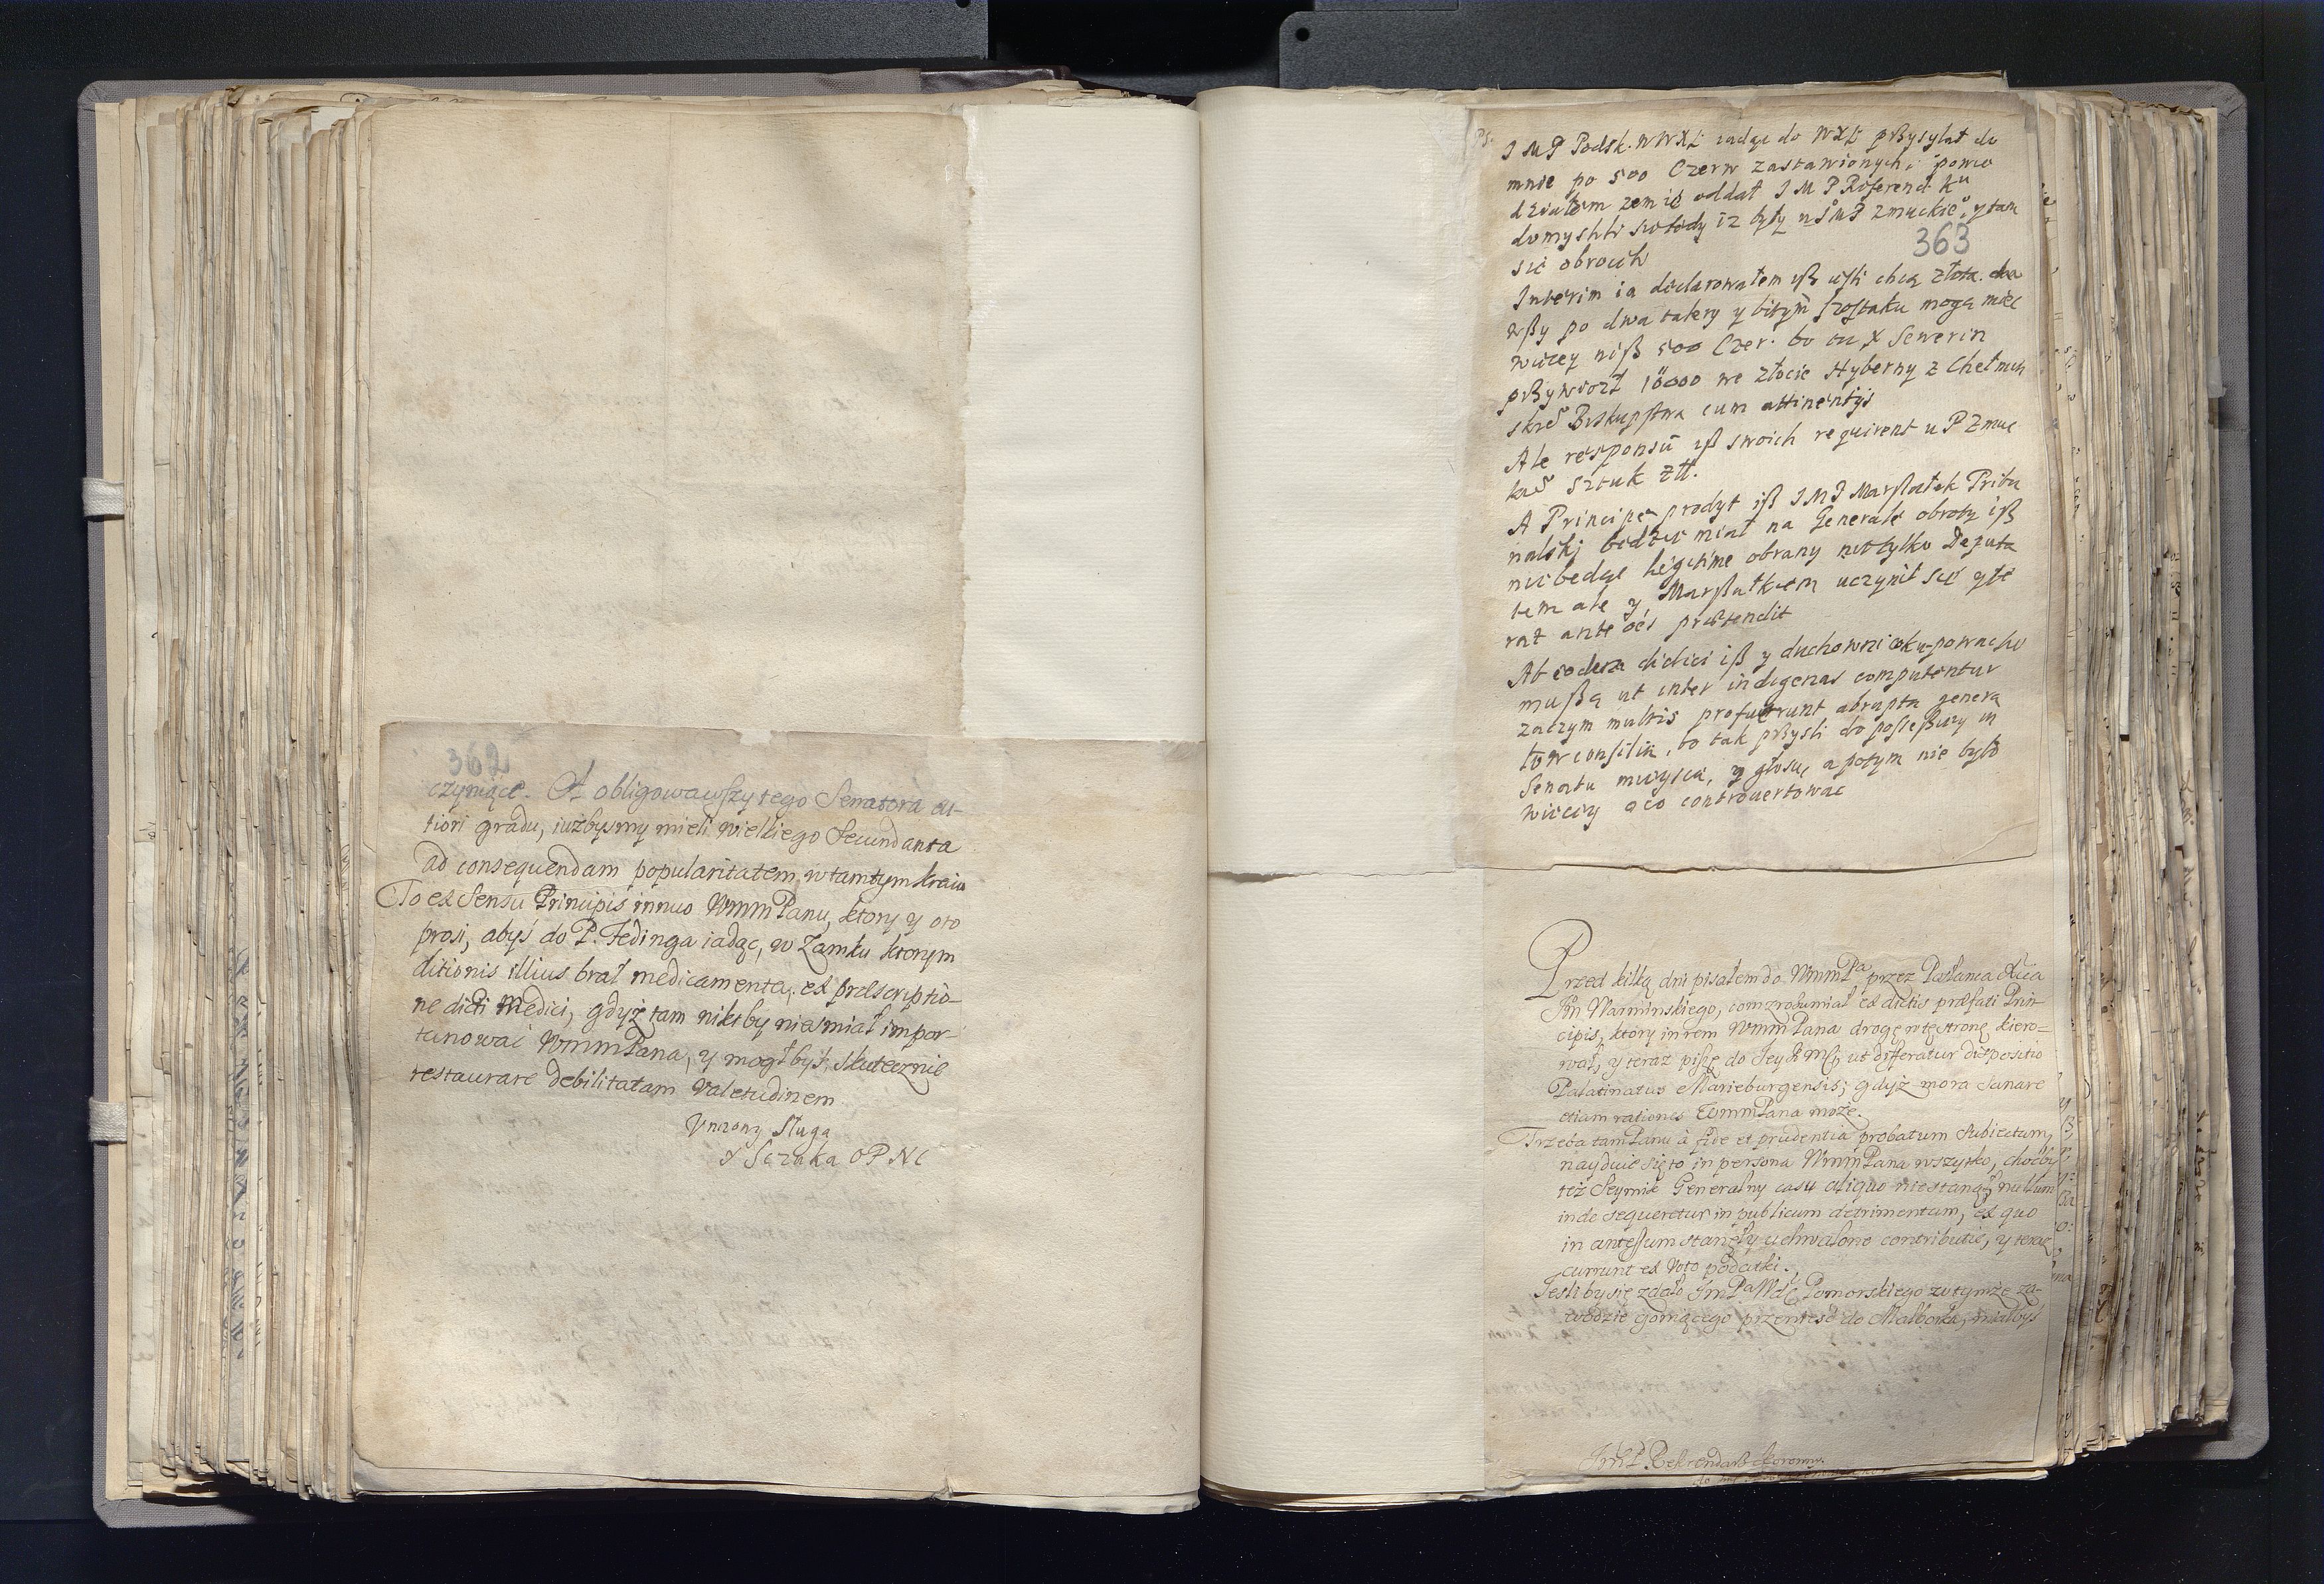 362
czyniące. A obligowawszy tego Senatora al-
tiori gradu, iużbysmy mieli wielkiego Secundanta
ad consequendam popularitatem w tamtym kraiu
To ex Sensu Principis innuo WmmPanu, ktory y oto
prosi, abyś do P. Fedinga iadąc, w Zamku ktorym
ditionis illius brał medicamenta, ex praescriptio-
ne dicti Medici, gdyż tam niktby niesmiał impor-
tunować WmmPana, y mogłbyś skutecznie
restaurare debilitatam valetudinem
Vnizony Sługa
X Sczuka OPNC
PS.
I M P Podsk. WWXL iadąc do WXL przysyłał do
mnie po 500 Czerw zastawionych i powie
działem zem ie oddał I M P Referend. Ku
363
się obrocił
Interim ia declarowałem iß iesli chcą złota
po dwa talery y bitym szostaku mogą miec
więcey niß 500 Czer. bo tu X Sewerin
przywiozł 10000 we złocie Hyberny z Chełmin
skieo Biskupstwa cum attinentijs
Ale responsū iß swoich requirent u P Zmuc
kieo sztuk złł.
A Principe prodyt iß I M P Marszałek Tribu
nalski bedzie miał na Generale obroty iß
nie bedąc legitime obrany nie tylko Deputa
tem ale y Marszałkiem uczynił się y te
raz ante oēs praetendit
Ab eodem didici iß y duchowni
mußą ut inter indigenas computentur
zaczym multis profuerunt abrupta genera
low consilia, bo tak przysli do posleßury in
Senatu mieysca, y głosu, a potym nie było
więcey o co controvertowac
Przed kilką dni pisałem do WmmPa przez Posłańca Xcia
Im Warminskiego, com zrozumiał ex dictis praefati Prin-
cipis, ktory in rem WmmPana drogę w tę stronę kiero-
wał, y teraz piszę do Jey K Mci, ut differatur dispositio
Palatinatus Marieburgensis; gdyż mora sanare
etiam rationes WmmPana może.
Trzeba tam Panu à fide et prudentia probatum Subiectum,
nayduie się to in persona WmmPana wszytko, choćby
też Seymik Generalny casu aliquo niestanął, nullum
inde sequeretur in publicum detrimentum, ex quo
in antessum stanęły uchwalone contributie, y teraz
currunt ex Voto podatki.
Jesli by się zdało ImPa Wdę Pomorskiego w tymże za-
wodzie goniącego przeniesć do Malborka, miałbyś
JmP. Referendarz Koronny.